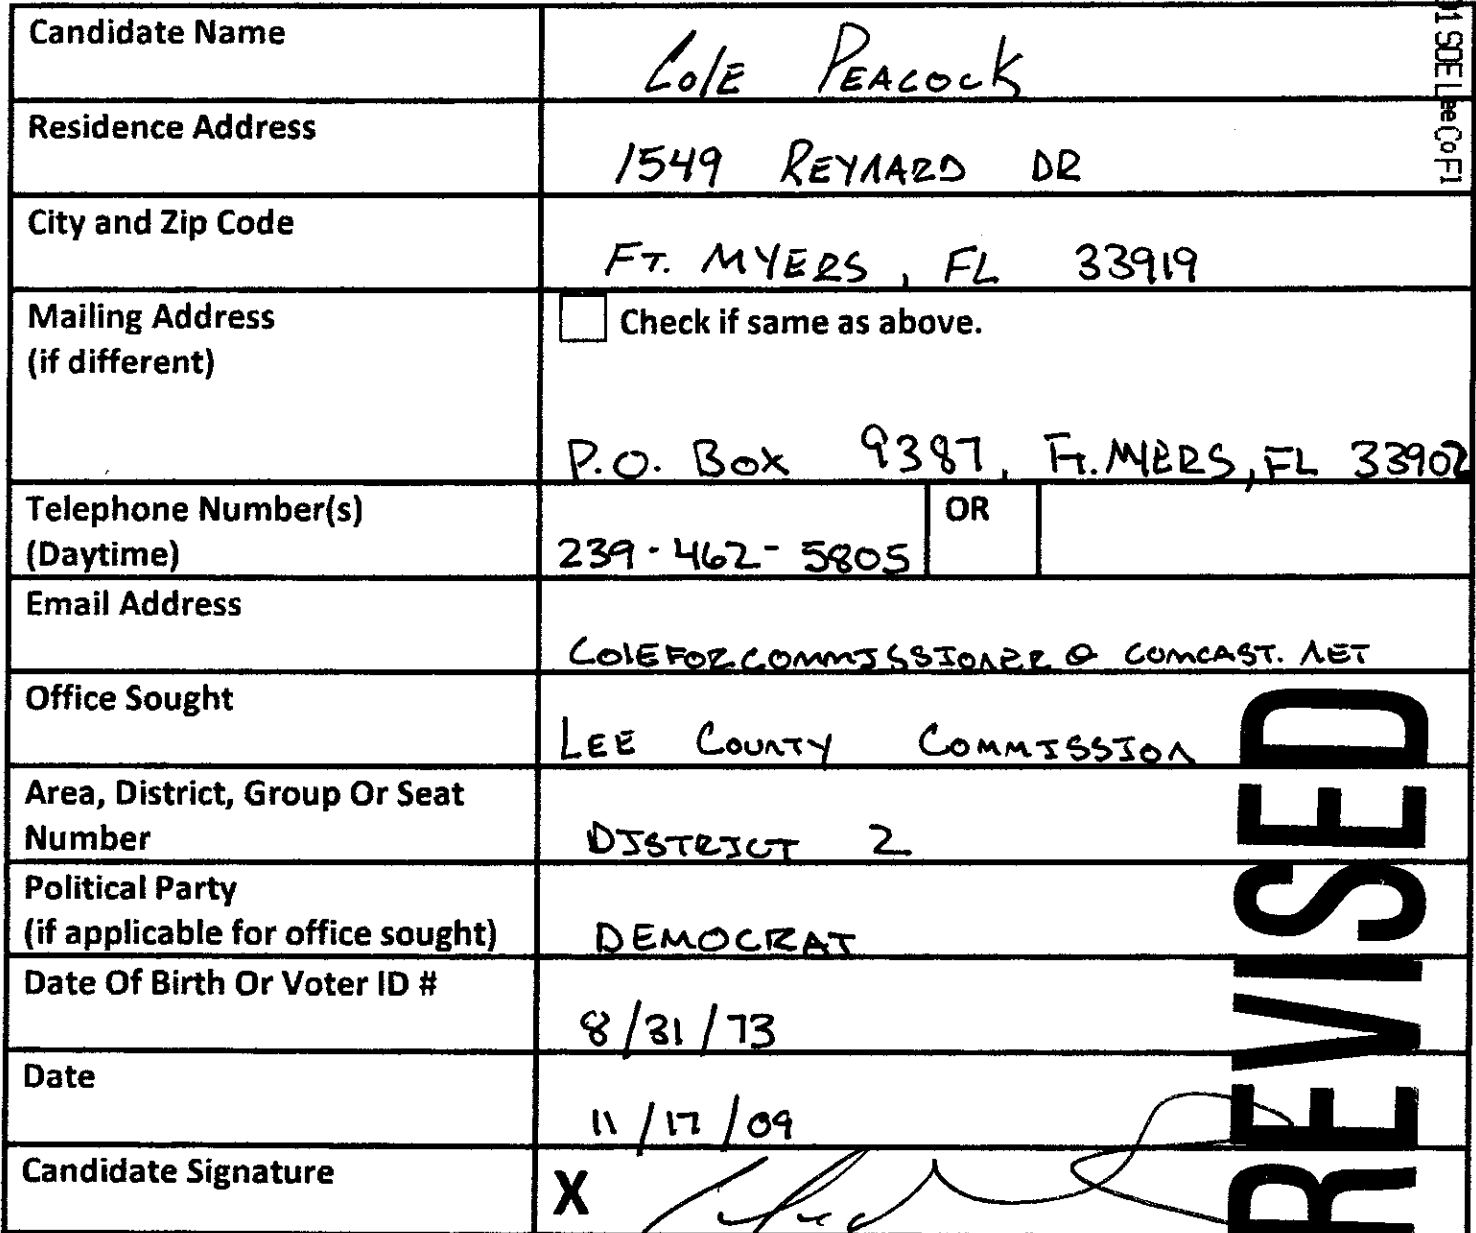 Candidate Name
Cole Peacock
Residence Address
1549 REYNARD DR
City and Zip Code
FT. MYERS, FL 33919
Mailing Address
(if different)
Check if same as above.
P.O. Box 9387, Ft. MYERS, FL 33902
Telephone Number(s)
(Daytime)
239-462-5805
OR
Email Address
COLEFORCOMMISSIONER@COMCAST.NET
Office Sought
LEE COUNTY COMMISSION
Area, District, Group Or Seat
Number
DISTRICT 2
Political Party
(if applicable for office sought)
DEMOCRAT
Date Of Birth Or Voter ID #
8/31/73
Date
11/17/09
Candidate Signature
X
REVISED
SOE Lee Co Fl